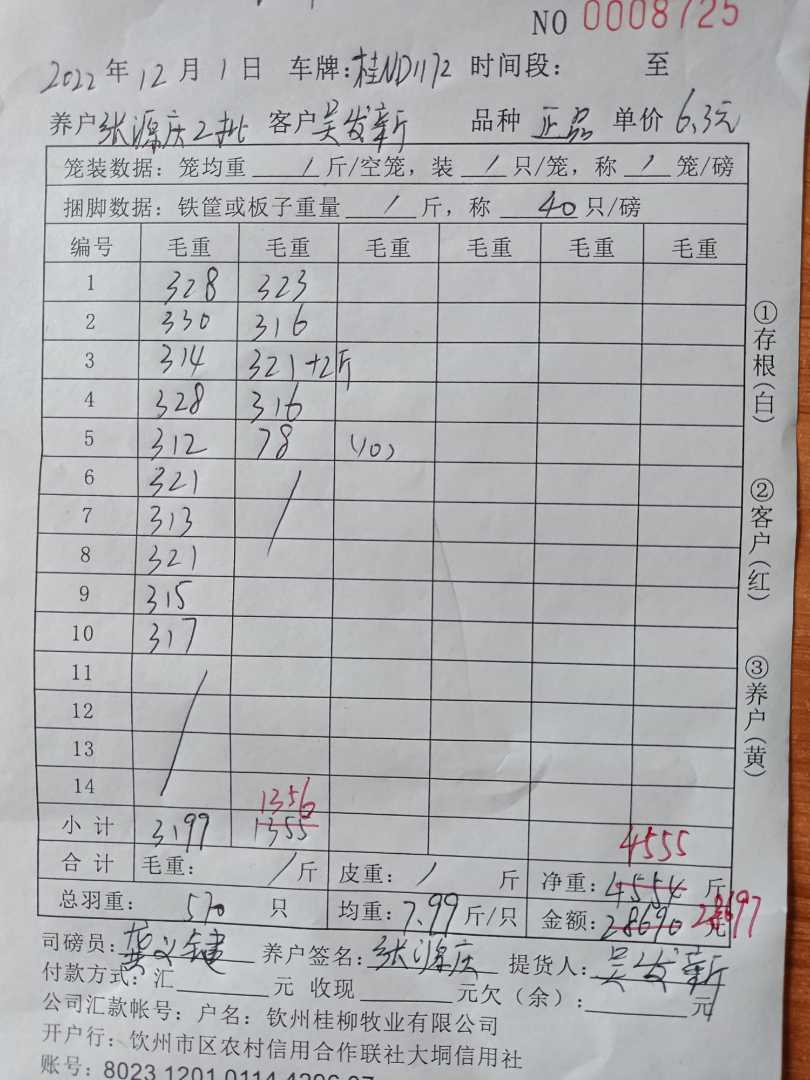 NO 0008725
2022年12月1日 车牌:桂ND1172 时间段: 至
养户张源庆2批 客户吴发新 品种 正品 单价 6.3元
笼装数据:笼均重 / 斤/空笼,装 / 只/笼,称 / 笼/磅
捆脚数据:铁筐或板子重量 / 斤,称 40 只/磅
编号 毛重 毛重 毛重 毛重 毛重 毛重
1 328 323
2 330 316
3 314 321+2斤
4 328 316
5 312 78 (10)
6 321 /
7 313
8 321
9 315
10 317
11 /
12
13
14
1356
小计 3199 1355
4555
合计 毛重: / 斤 皮重: / 斤 净重:4554 斤
总羽重: 570 只 均重:7.99斤/只 金额:28690元 28697
司磅员:龚义键 养户签名:张源庆 提货人:吴发新
付款方式:汇 元 收现 元欠(余): 元
公司汇款帐号:户名:钦州桂柳牧业有限公司
开户行:钦州市区农村信用合作联社大垌信用社
账号:8023 1201 0114
①存根(白)
②客户(红)
③养户(黄)